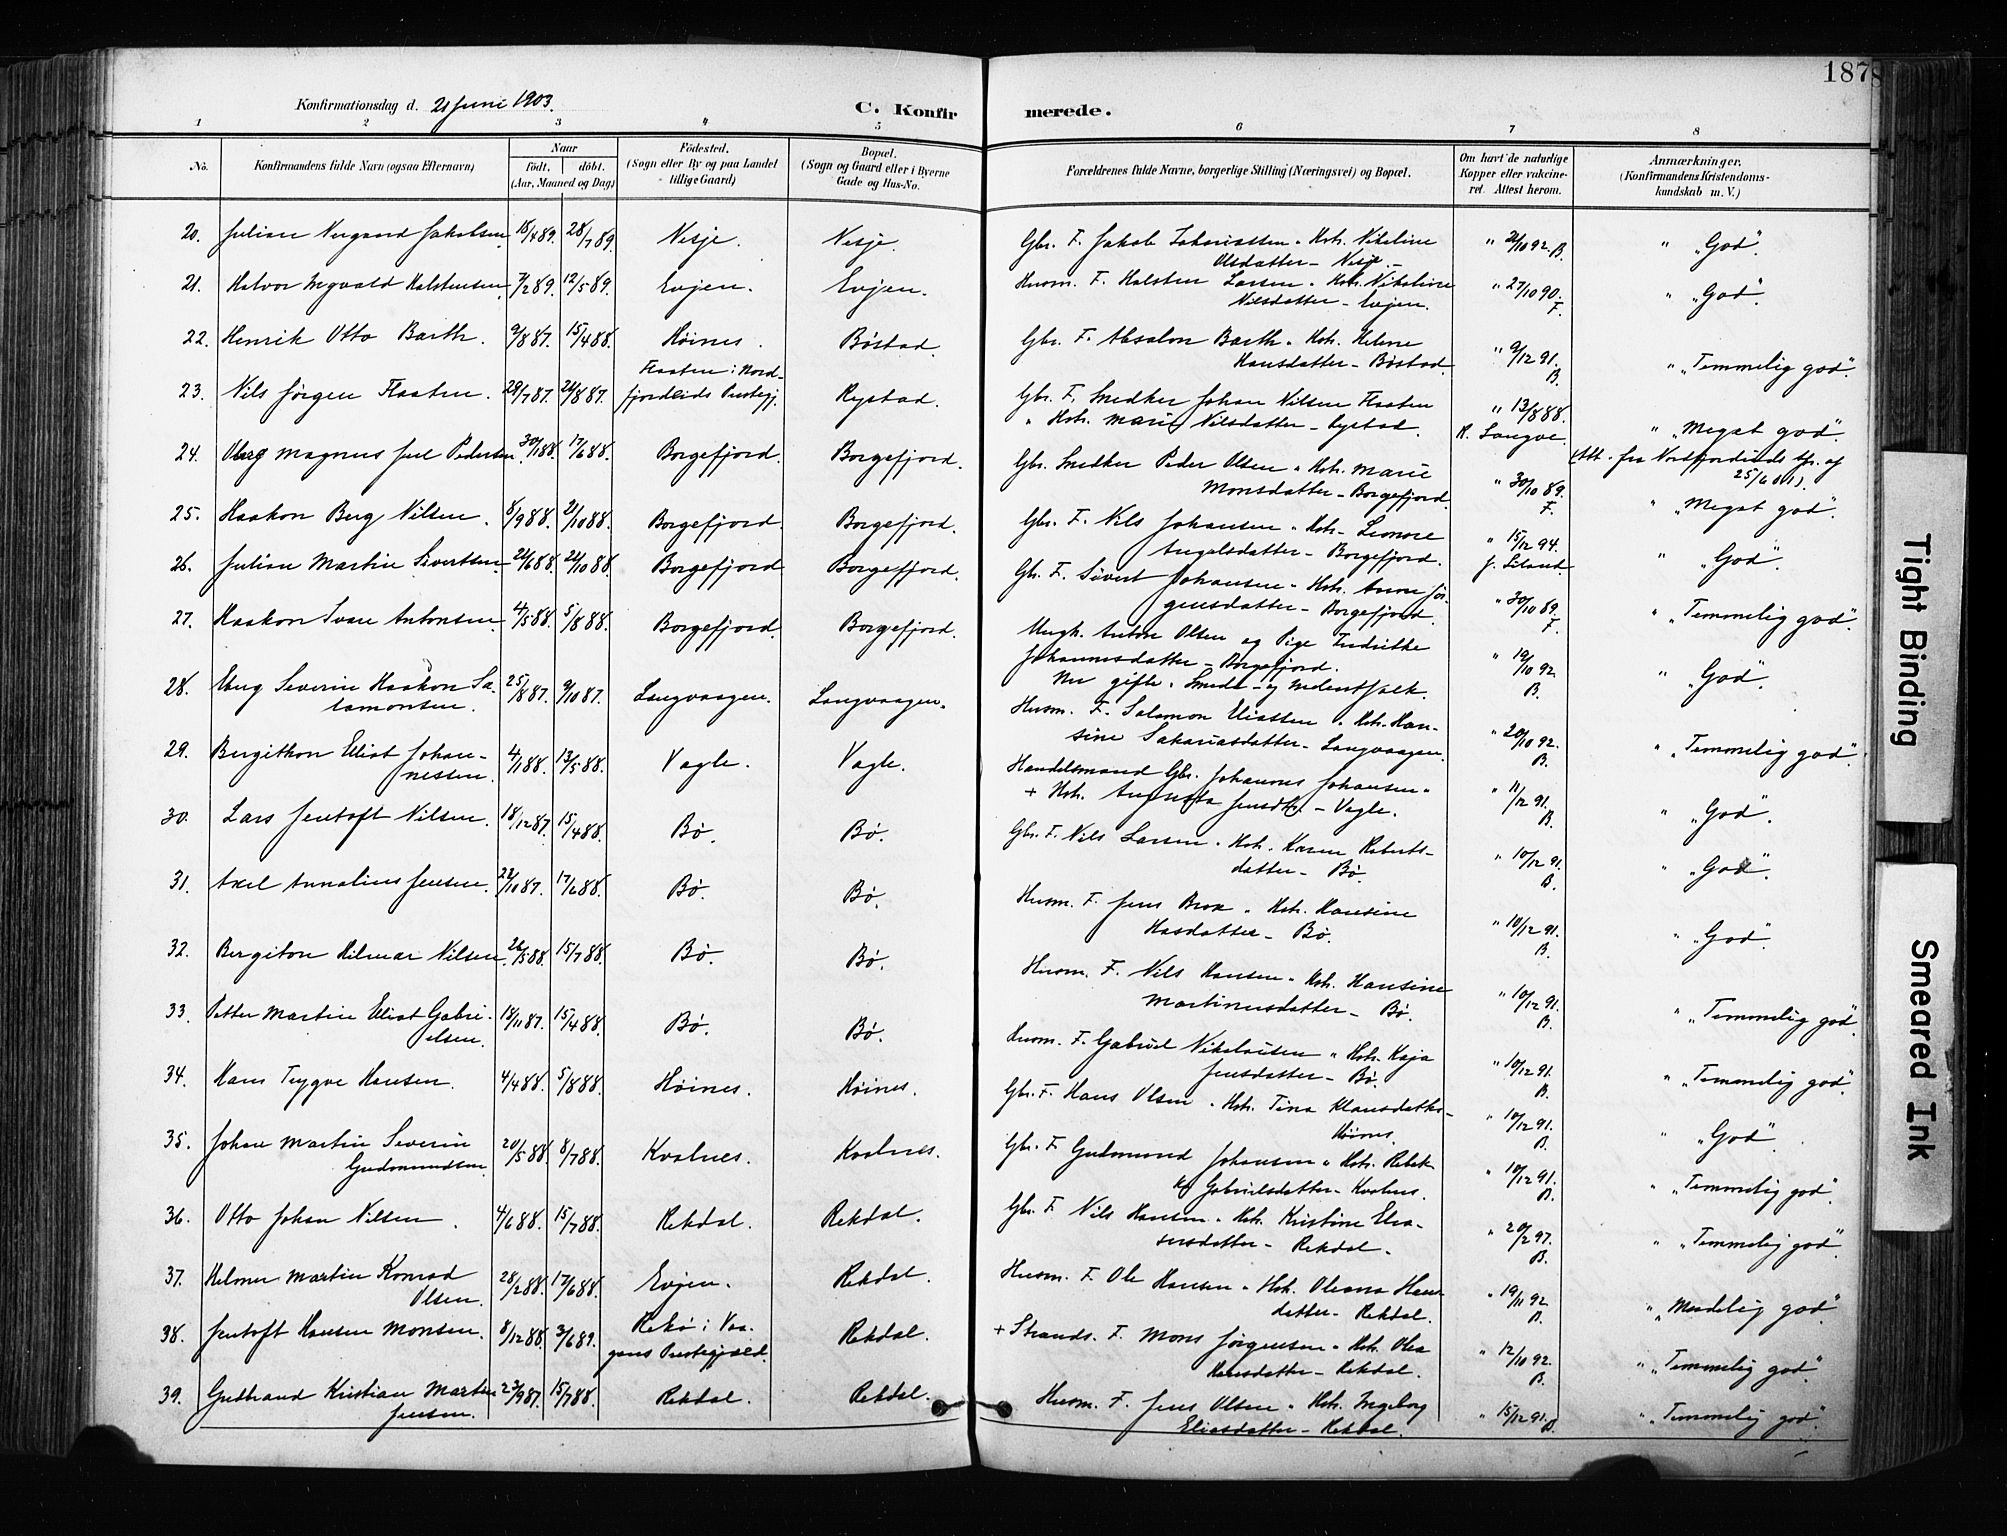 187
Konfirmationsdag d. 21 Juni 1903.
C. Konfirmerede.
1 2 3 4 5 6 7 8
No. Konfirmandens fulde Navn (ogsaa Efternavn) Naar födt. döbt. (Aar, Maaned og Dag) Födested. (Sogn eller By og paa Landet tillige Gaard) Bopæl. (Sogn og Gaard eller i Byerne Gade og Hus-No. Forældrenes fulde Navne, borgerlige Stilling (Næringsvei) og Bopæl. Om havt de naturlige Kopper eller vakcineret. Attest herom. Anmærkninger. (Konfirmandens Kristendomskundskab m. V.)
20. Julian Nergaard Jakobsen 18/4 89. 28/7 89. Nesje. Nesje. Gbr. F. Jakob Zakariassen " Hstr. Nikoline Olsdatter – Nesje – " 21/10 92. B. " "God".
21. Halvor Ingvald Halstensen 7/2 89. 12/5 89. Evjen. Evjen. Husm. F. Halsten Larsen " Hstr. Nikoline Nilsdatter – Evjen. " 27/10 90. F. " "God".
22. Henrik Otto Barth. 9/8 87. 15/4 88. Høines. Bøstad. Gbr. F. Absalon Barth " Hstr. Helene Hansdatter – Bøstad. " 9/12 91. B. " "Temmelig god".
23. Nils Jørgen Flaaten. 28/7 87. 21/8 87. Flaaten i Nordfjordeids Prestegj. Rystad. Gbr. F. Snedker Johan Nilsen Flaaten " Hstr. Marie Nilsdatter – Rystad. " 13/8 88. K. Langve " "Meget god". (Att. fra Nordfjordeids Spr. af 25/6 01).
24. Magnus Juel Pedersen. 30/1 88. 17/6 88. Borgefjord. Borgefjord. Gbr. Snedker Peder Olsen " Hstr. Marie Monsdatter – Borgefjord. " 30/10 89. F. " "Meget god".
25. Haakon Berg Nilsen. 8/9 88. 21/10 88. Borgefjord. Borgefjord. Gbr. F. Nils Johansen " Hstr. Leonore Angelsdatter – Borgefjord. " 15/12 94. " "God".
26. Julian Martin Sivertsen 24/6 88. 21/10 88. Borgefjord Borgefjord. Gbr. F. Sivert Johansen " Hstr. Anne Jørgensdatter – Borgefjord. " 30/10 89. F. " "Temmelig god".
27. Haakon Svare Antonsen 4/5 88. 5/8 88. Borgefjord. Borgefjord. Ungk. Anton Olsen og Pige Indrikke Johannesdatter – Borgefjord. Nu gifte. " 19/10 92. B. " "God".
28. Severin Haakon Salamonsen. 25/8 87. 9/10 87. Langvaagen. Langvaagen. Husm. F. Salamon Eliassen " Hstr. Hansine Sakariasdatter – Langvaagen " 20/10 92. B. " "Temmelig god".
29. Bergithon Elliot Johannessen. 4/1 88. 13/5 88. Vagle. Vagle. Handelsmand Gbr. Johannes Johansen " + Hstr. Augusta Jensdtr. – Vagle. " 11/12 91. B. " "God".
30. Lars Jentoft Nilsen. 18/12 87. 15/4 88. Bø. Bø. Gbr. F. Nils Larsen " Hstr. Karen Robertsdatter – Bø. " 10/12 91. B. " "God".
31. Axel Annalius Jensen. 22/10 87. 17/6 88. Bø. Bø. Husm. F. Jens Brox " Hstr. Hansine Hasdatter – Bø. " 10/12 91. B. " "God".
32. Bergiton Hilmar Nilsen. 26/5 88. 15/7 88. Bø. Bø. Husm. F. Nils Hansen " Hstr. Hansine Martinusdatter – Bø. " 10/12 91. B. " "Temmelig god".
33. Petter Martin Eliot Gabrielsen. 18/11 87. 15/4 88. Bø. Bø. Husm. F. Gabriel Nikolaisen " Hstr. Kaja Jensdatter – Bø. " 10/12 91. B. " "Temmelig god".
34. Hans Trygve Hansen. 4/4 88. 5/8 88. Høines. Høines. Gbr. F. Hans Olsen " Hstr. Tina Klausdatter – Høines. " 10/12 91. B. " "God".
35. Johan Martin Severin Gudmundsen 20/5 88. 8/7 88. Kvalnes. Kvalnes. Gbr. F. Gudmund Johansen " Hstr. Rebekka Gabrielsdatter – Kvalnes. " 10/12 91. B. " "Temmelig god".
36. Otto Johan Nilsen. 4/6 88. 15/7 88. Rekdal. Rekdal. Gbr. F. Nils Hansen " Hstr. Kristine – Rekdal. " 20/2 97. B. " "Temmelig god".
37. Helmer Martin Konrad Olsen. 28/2 88. 17/6 88. Evjen. Rekdal. Husm. F. Ole Hansen " Hstr. Oleana Hansdatter – Rekdal. " 19/11 92. B. " "Maadelig god".
38. Jentoft Hansen Monsen. 8/12 88. 3/6 89. Rekø i Vaagans Prestegjæld. Rekdal. + Strands. F. Mons Jørgensen " Hstr. Olea Hansdatter – Rekdal. " 12/10 92. B. " "Temmelig god".
39. Gudbrand Kristian Martin Jensen. 23/9 87. 15/7 88. Rekdal. Rekdal. Husm. F. Jens Olsen " Hstr. Ingeborg Eliasdatter – Rekdal. " 15/12 91. B. " "Temmelig god".
Tight Binding
Smeared Ink